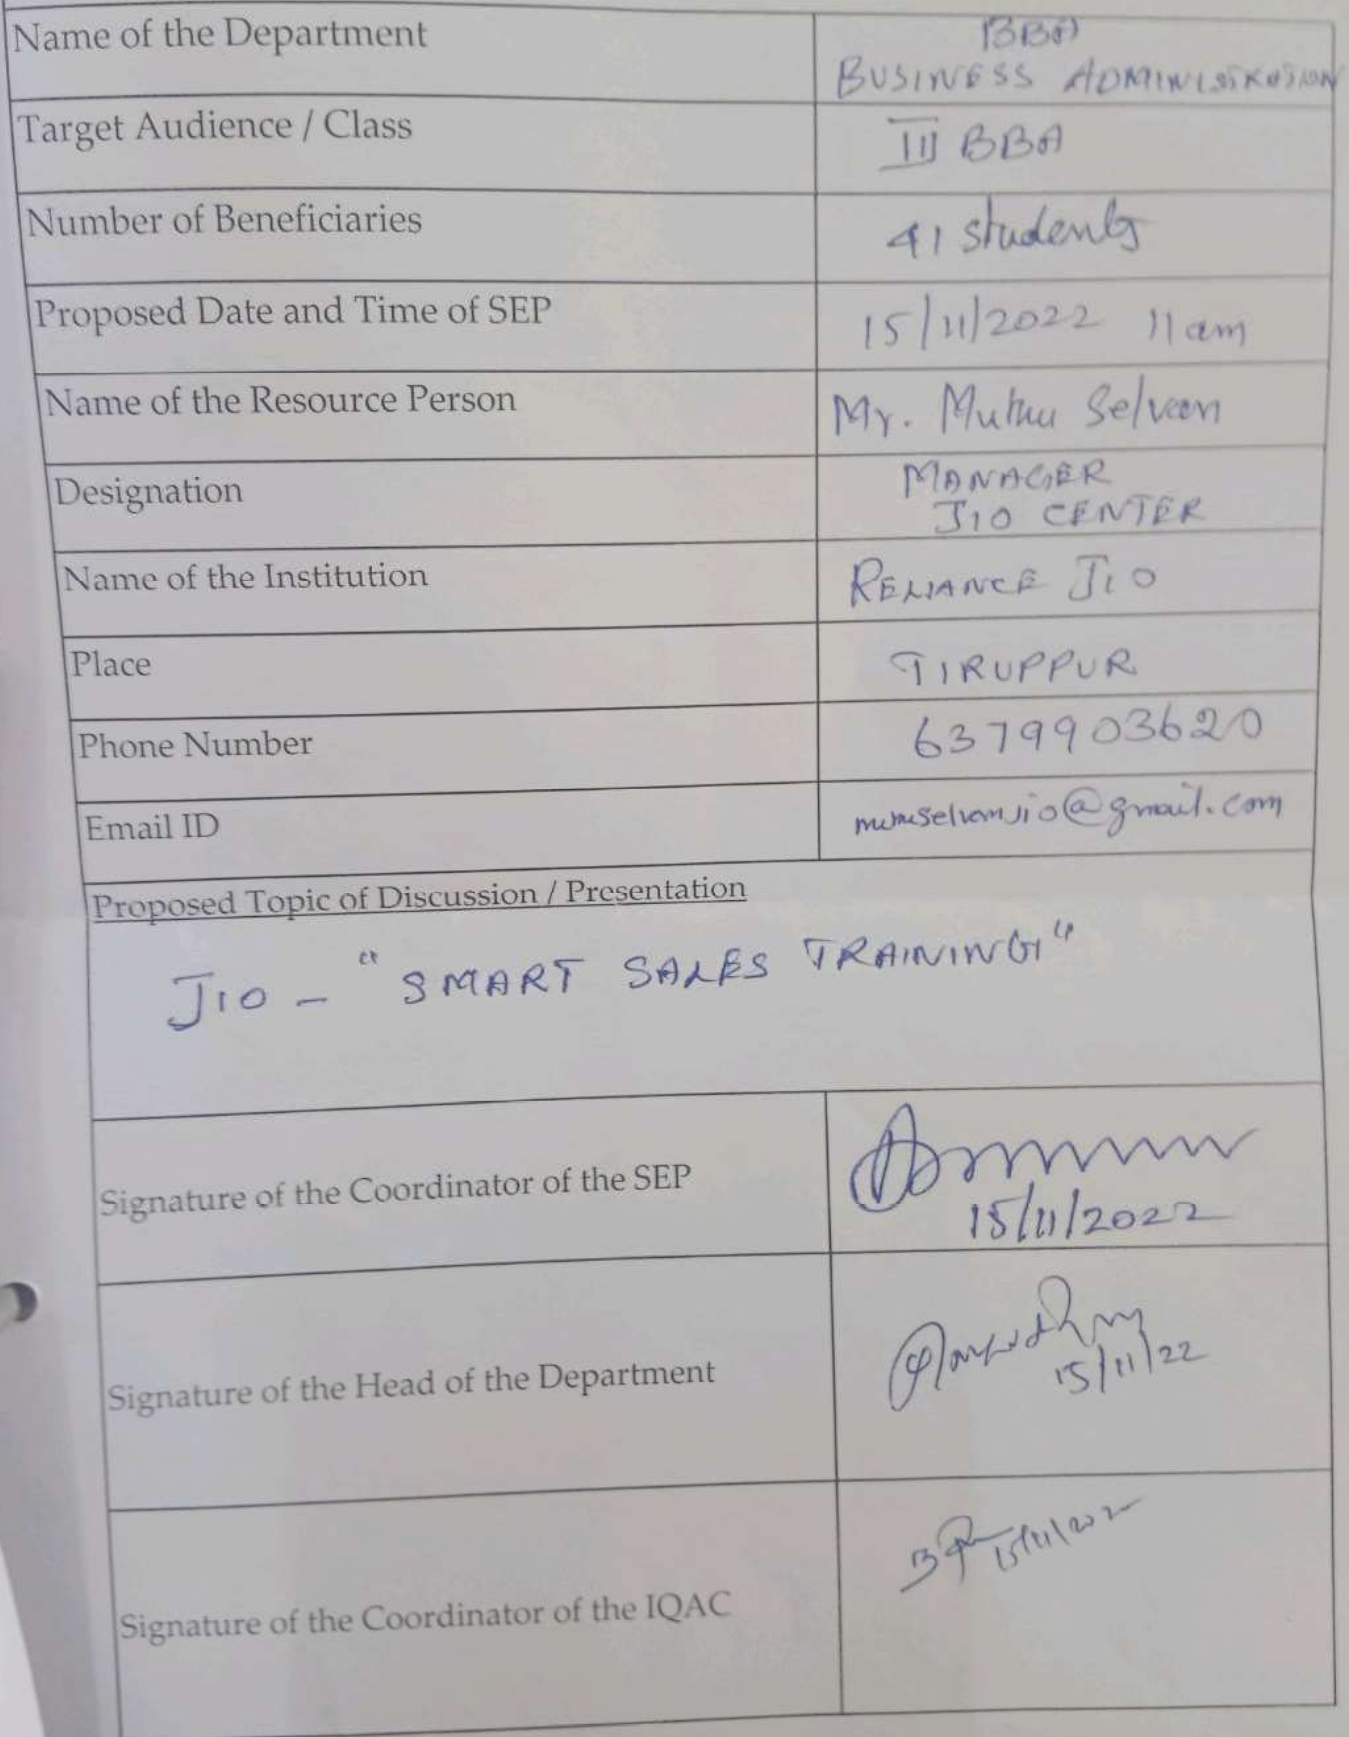 Name of the Department
BBA
BUSINESS ADMINISTRATION
Target Audience / Class
III BBA
Number of Beneficiaries
41 students
Proposed Date and Time of SEP
15/11/2022 11 am
Name of the Resource Person
Mr. Muthu Selvan
Designation
MANAGER
JIO CENTER
Name of the Institution
RELIANCE JIO
Place
TIRUPPUR
Phone Number
6379903620
Email ID
Proposed Topic of Discussion / Presentation
JIO - "SMART SALES TRAINING"
Signature of the Coordinator of the SEP
15/11/2022
Signature of the Head of the Department
15/11/22
Signature of the Coordinator of the IQAC